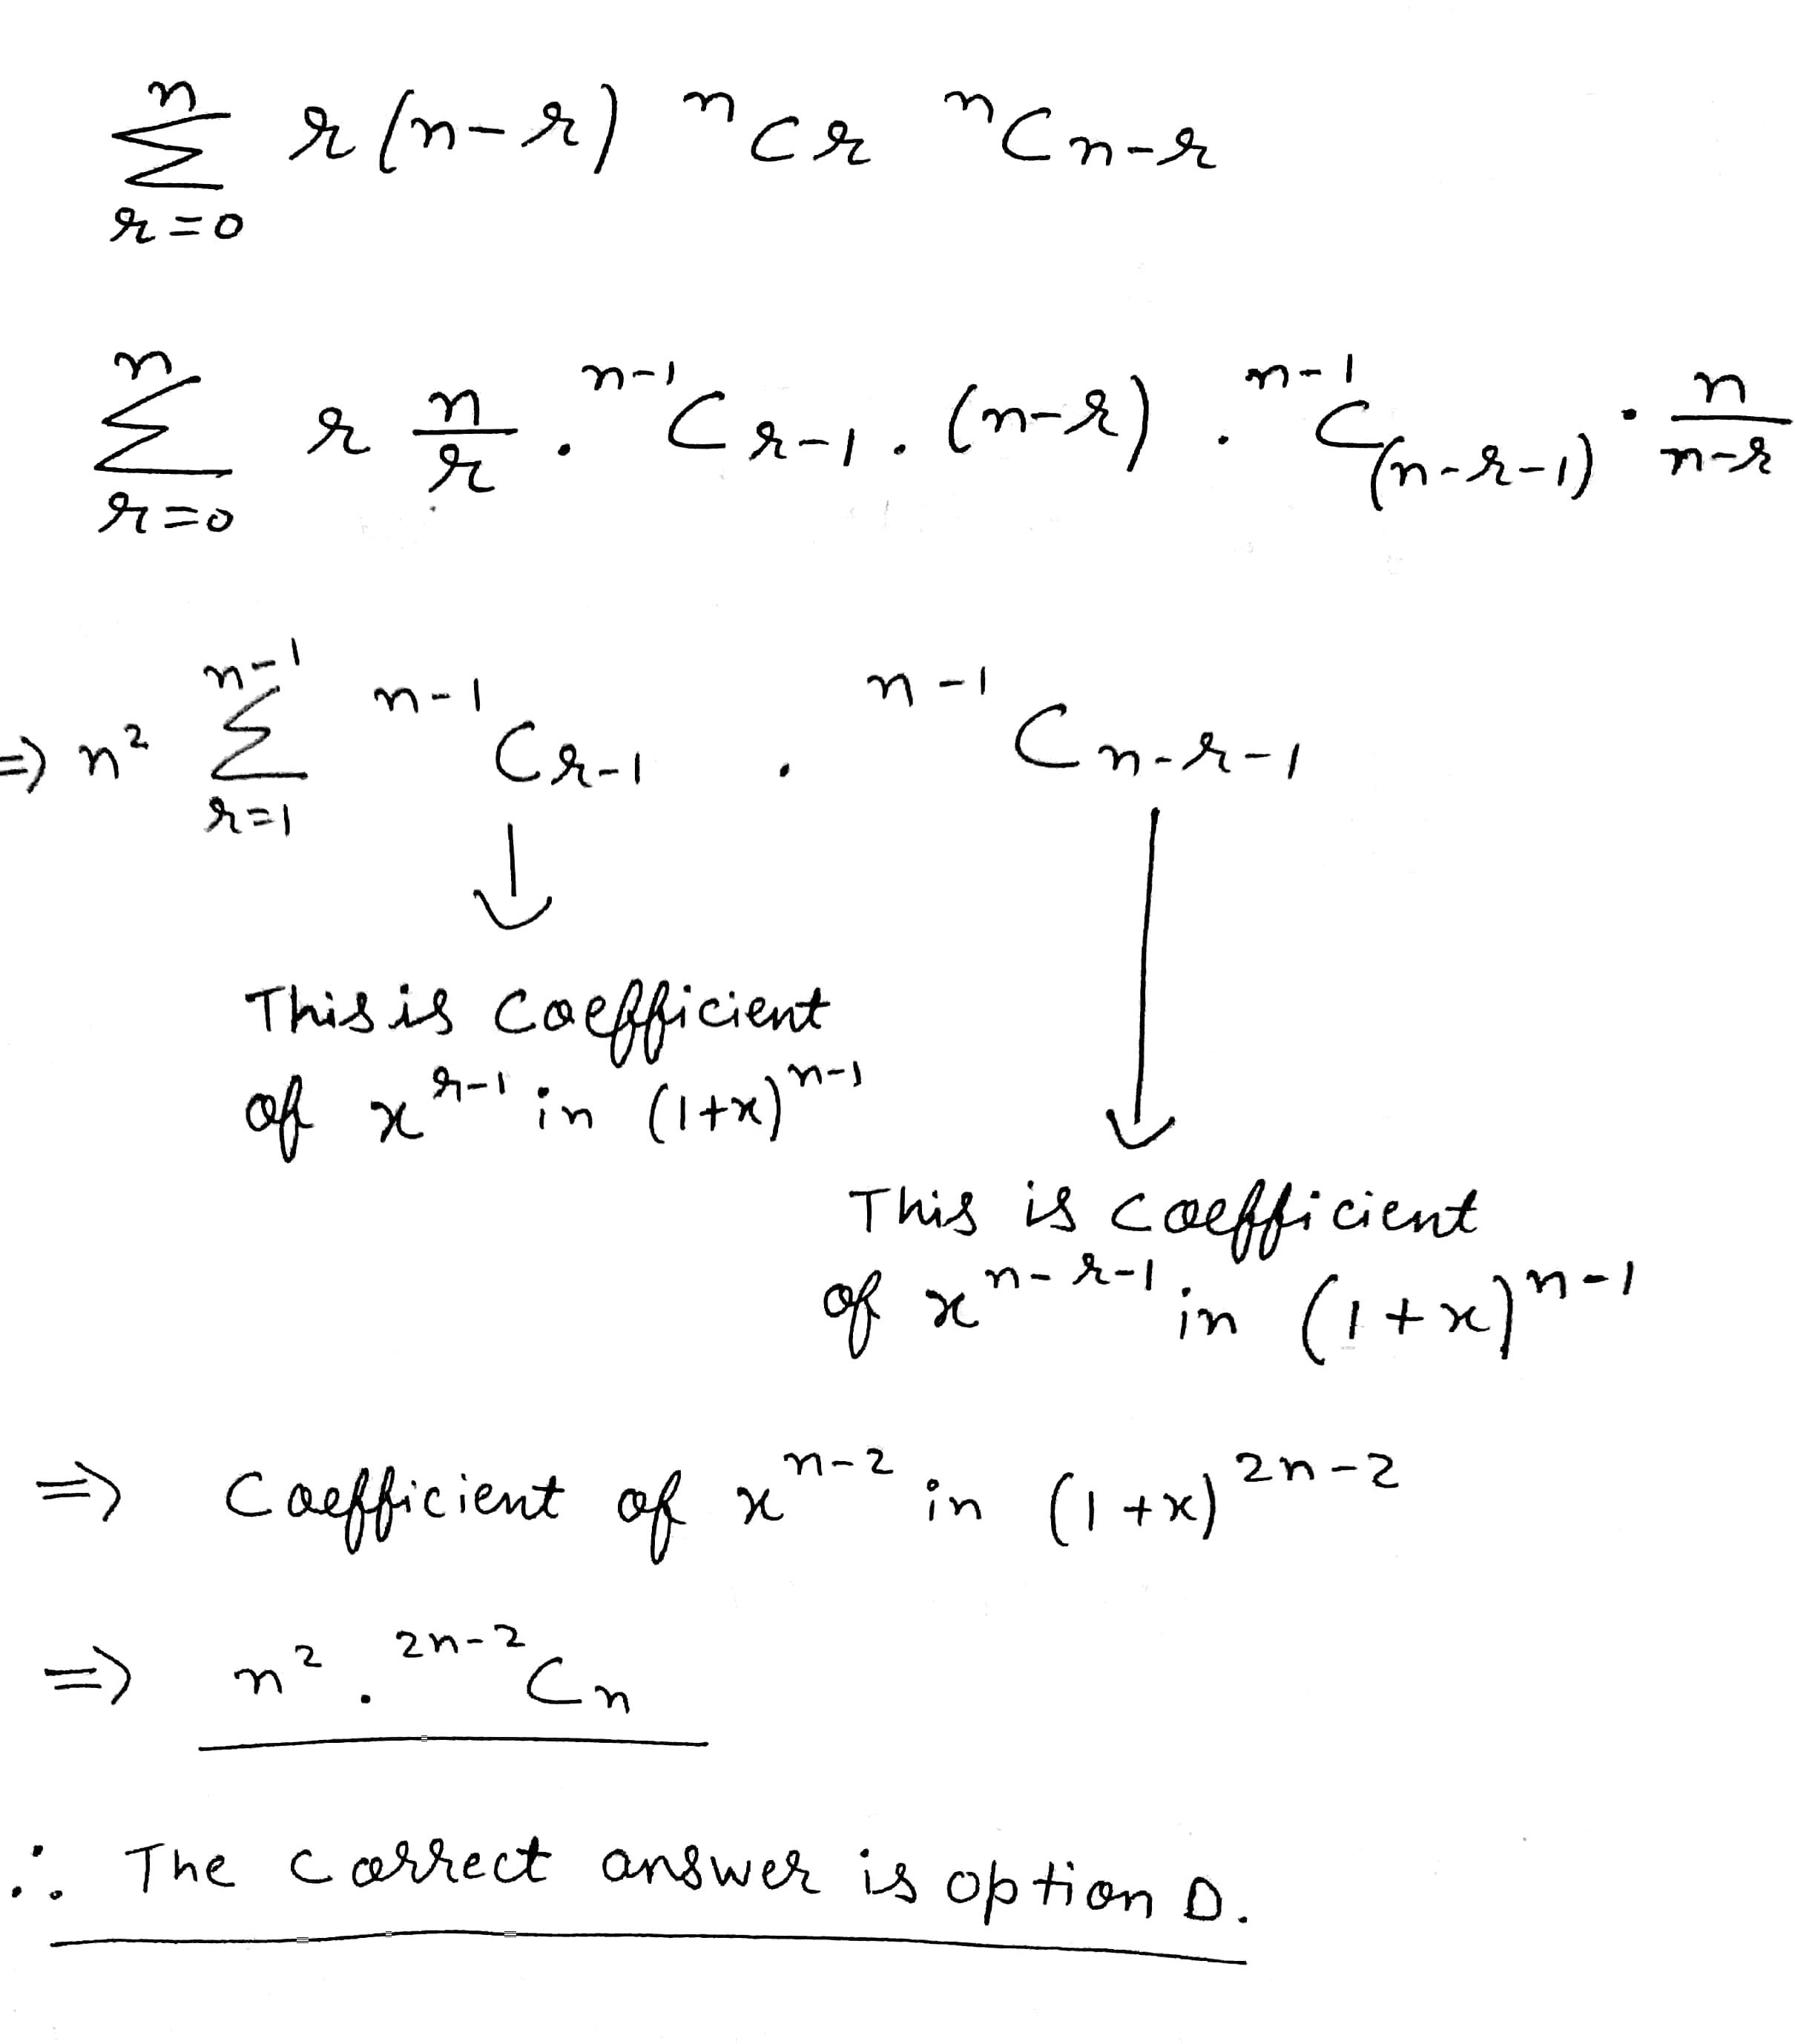 n
Σ r(n-r) ⁿCr ⁿCn-r
r=0
n
Σ r n/r . ⁿ⁻¹Cr-1 . (n-r) . ⁿ⁻¹C(n-r-1) . n/n-r
r=0
n-1
=> n² Σ ⁿ⁻¹Cr-1 . ⁿ⁻¹Cn-r-1
r=1
↓
This is coefficient
of xʳ⁻¹ in (1+x)ⁿ⁻¹
↓
This is coefficient
of xⁿ⁻ʳ⁻¹ in (1+x)ⁿ⁻¹
=> Coefficient of xⁿ⁻² in (1+x)²ⁿ⁻²
=> n² . ²ⁿ⁻²Cn
∴ The correct answer is option D.